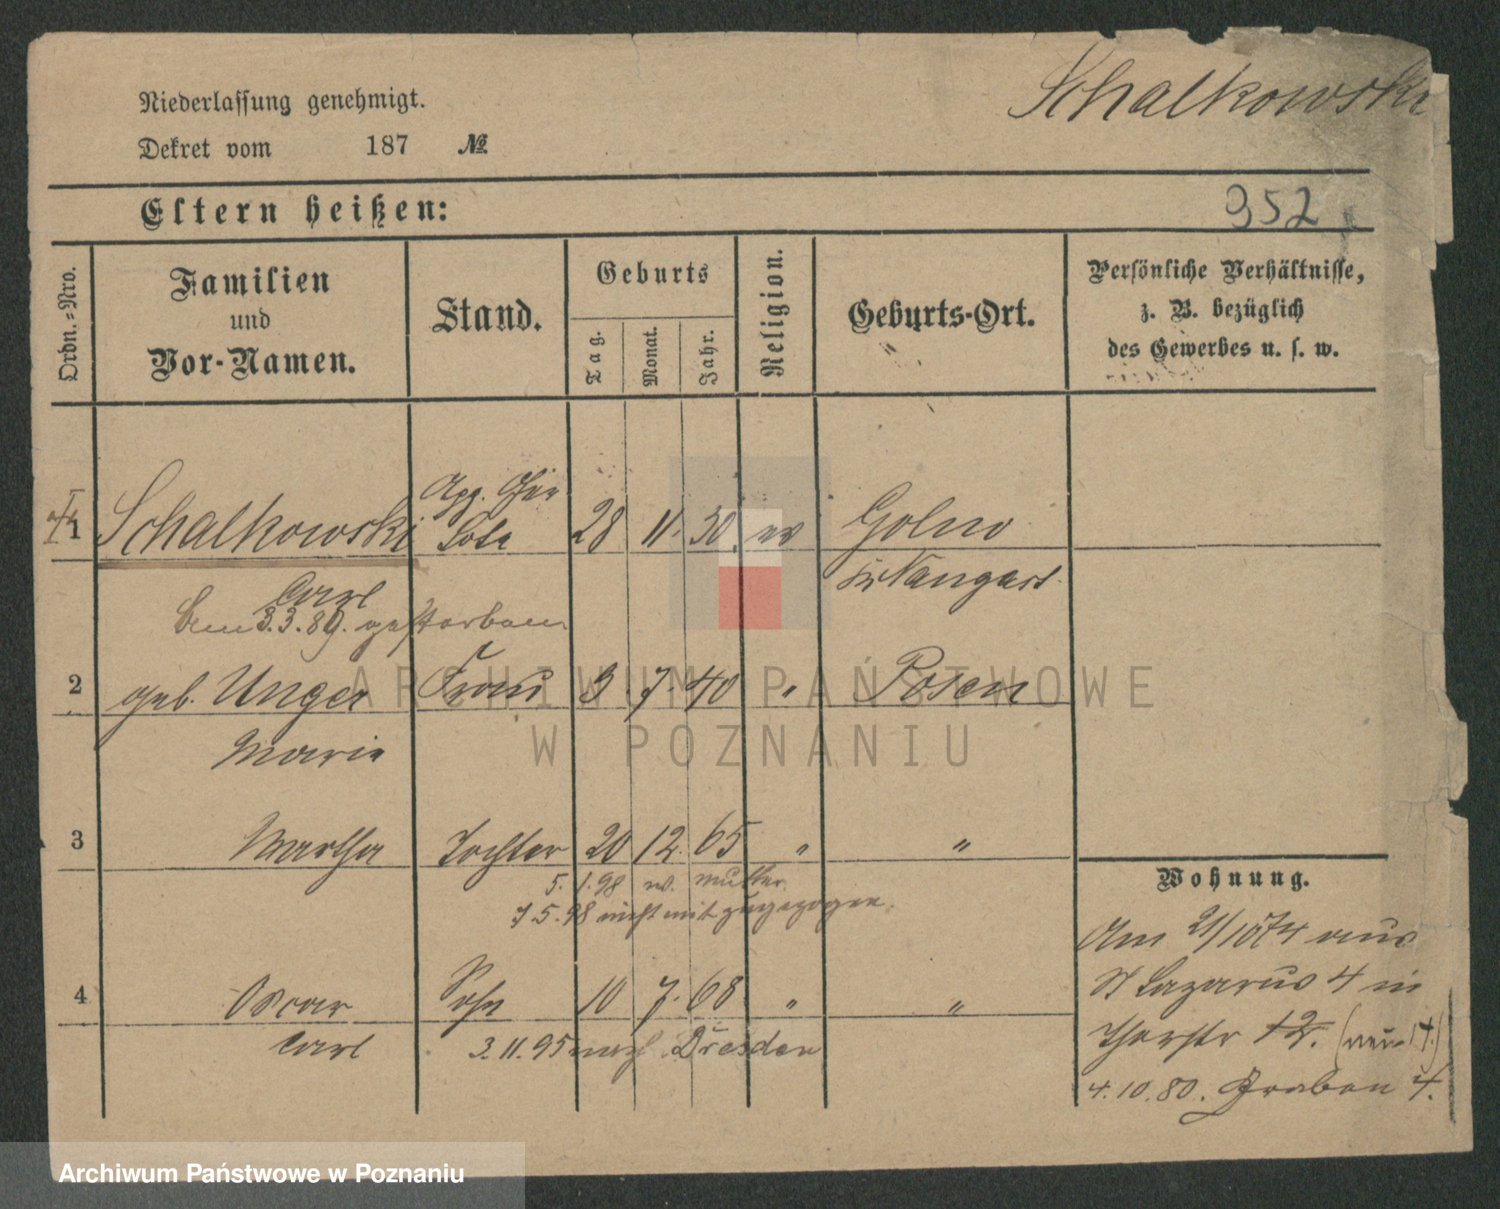 Schalkowski
Niederlassung genehmigt.
Dekret vom 187 №
Eltern heißen:
952
Ordn.-Nro.
Familien
und
Vor-Namen.
Stand.
Geburts
Tag.
Monat.
Jahr.
Religion.
Geburts-Ort.
Persönliche Verhältnisse,
z. B. bezüglich
des Gewerbes u. s. w.
1 Schalkowski App. Ger Bote 28 11. 30. ev Golno
Carl Kr Naugard
am 3.3.89. gestorben
2 geb. Unger Frau 3 7. 40 " Posen
Marie
3 Martha Tochter 20 12. 65 " "
5. 1. 98 w. Mutter.
7. 5. 98 nicht mit zugezogen.
4 Oscar Sohn 10 7. 68 " "
Carl 3. 11. 95 nach Dresden
Wohnung.
Am 21/10 74 aus
St Lazarus 4 in
Thorstr 12. (neu 14.)
4. 10. 80. Graben 4.
ARCHIWUM PAŃSTWOWE
W POZNANIU
Archiwum Państwowe w Poznaniu